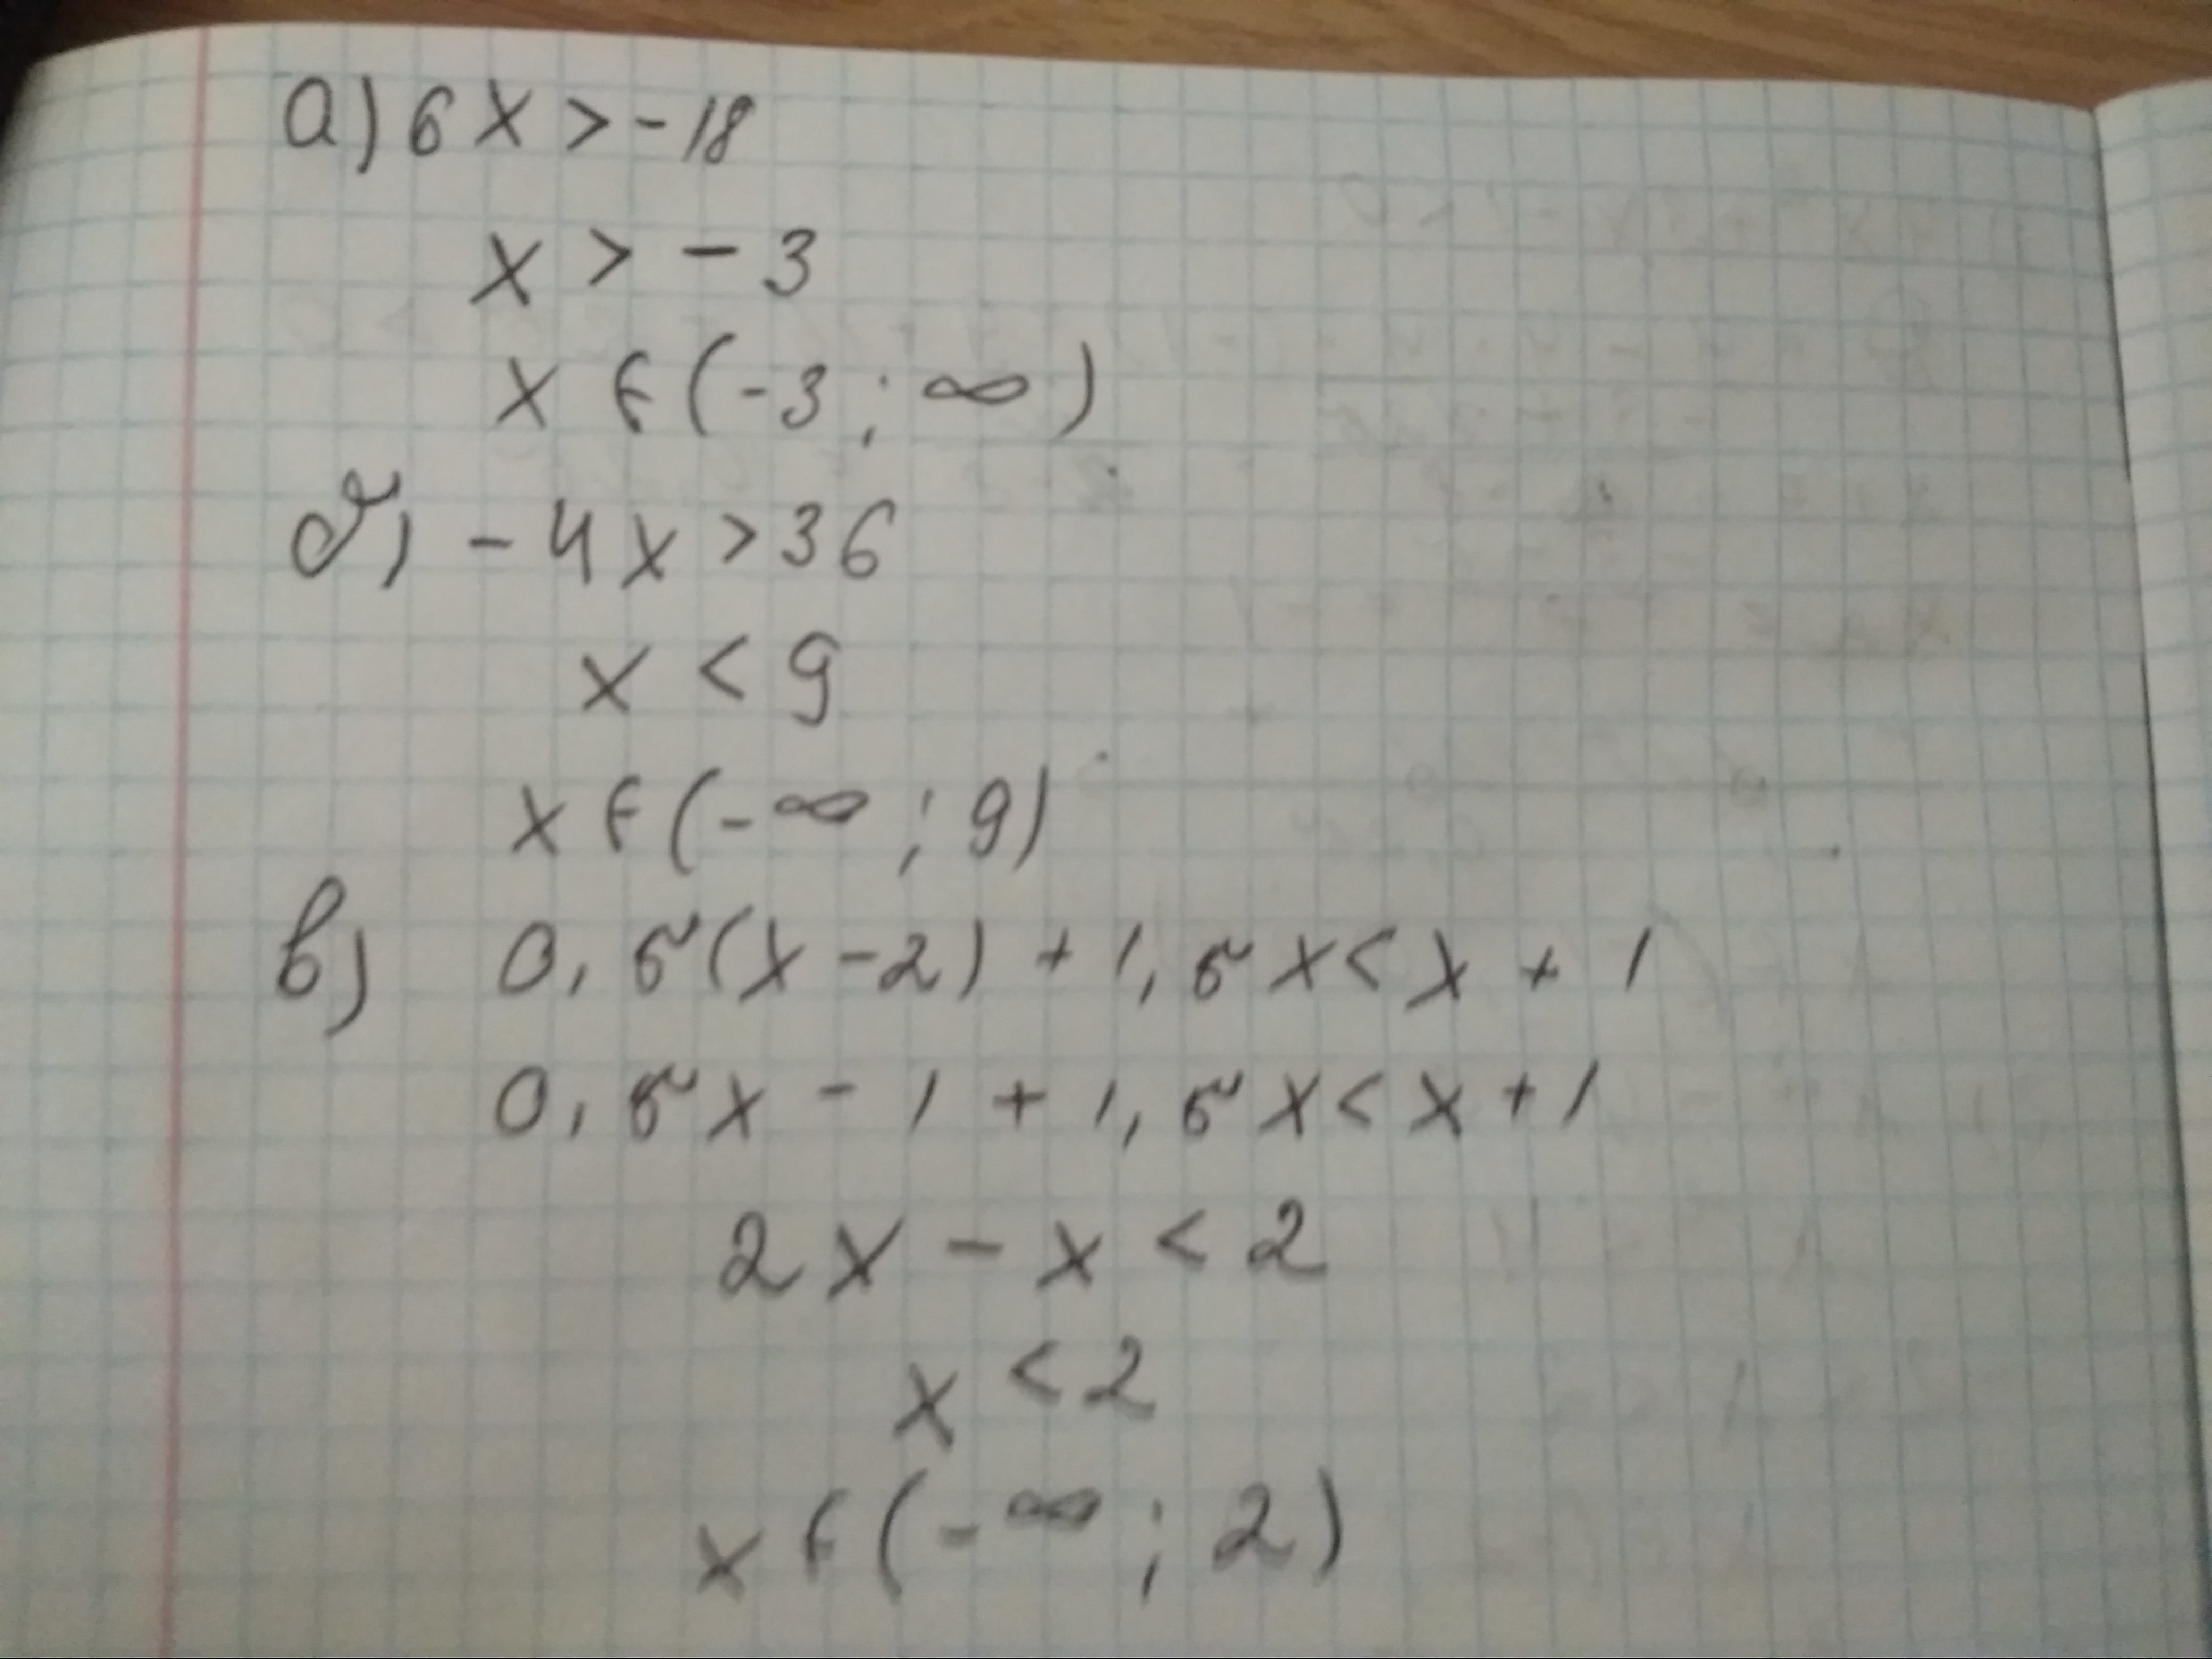 а) 6x > -18
x > -3
x ∈ (-3; ∞)
б) -4x > 36
x < 9
x ∈ (-∞; 9)
в) 0,5(x-2) + 1,5x < x + 1
0,5x - 1 + 1,5x < x + 1
2x - x < 2
x < 2
x ∈ (-∞; 2)